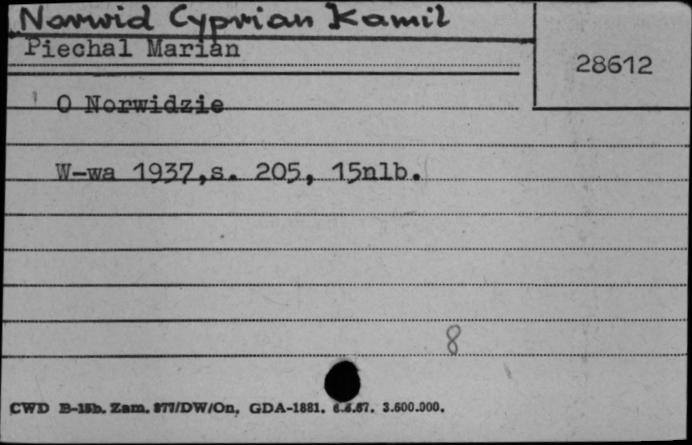 Norwid Cyprian Kamil
Piechal Marian
28612
O Norwidzie
W-wa 1937,s. 205, 15nlb.
8
CWD B-15b. Zam. 877/DW/On, GDA-1881. 3.600.000.